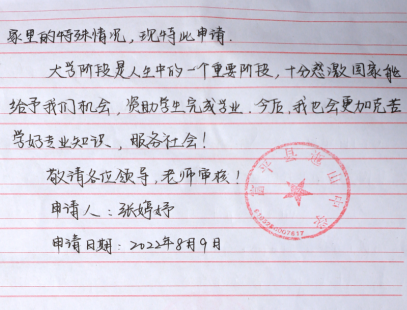 家里的特殊情况，现特此申请.
大学阶段是人生中的一个重要阶段，十分感激国家能
给予我们机会，资助学生完成学业. 今后，我也会更加克苦
学好专业知识、服务社会！
敬请各位领导，老师审核！
申请人：张婷妤
申请日期：2022年8月9日
富平县迤山中学